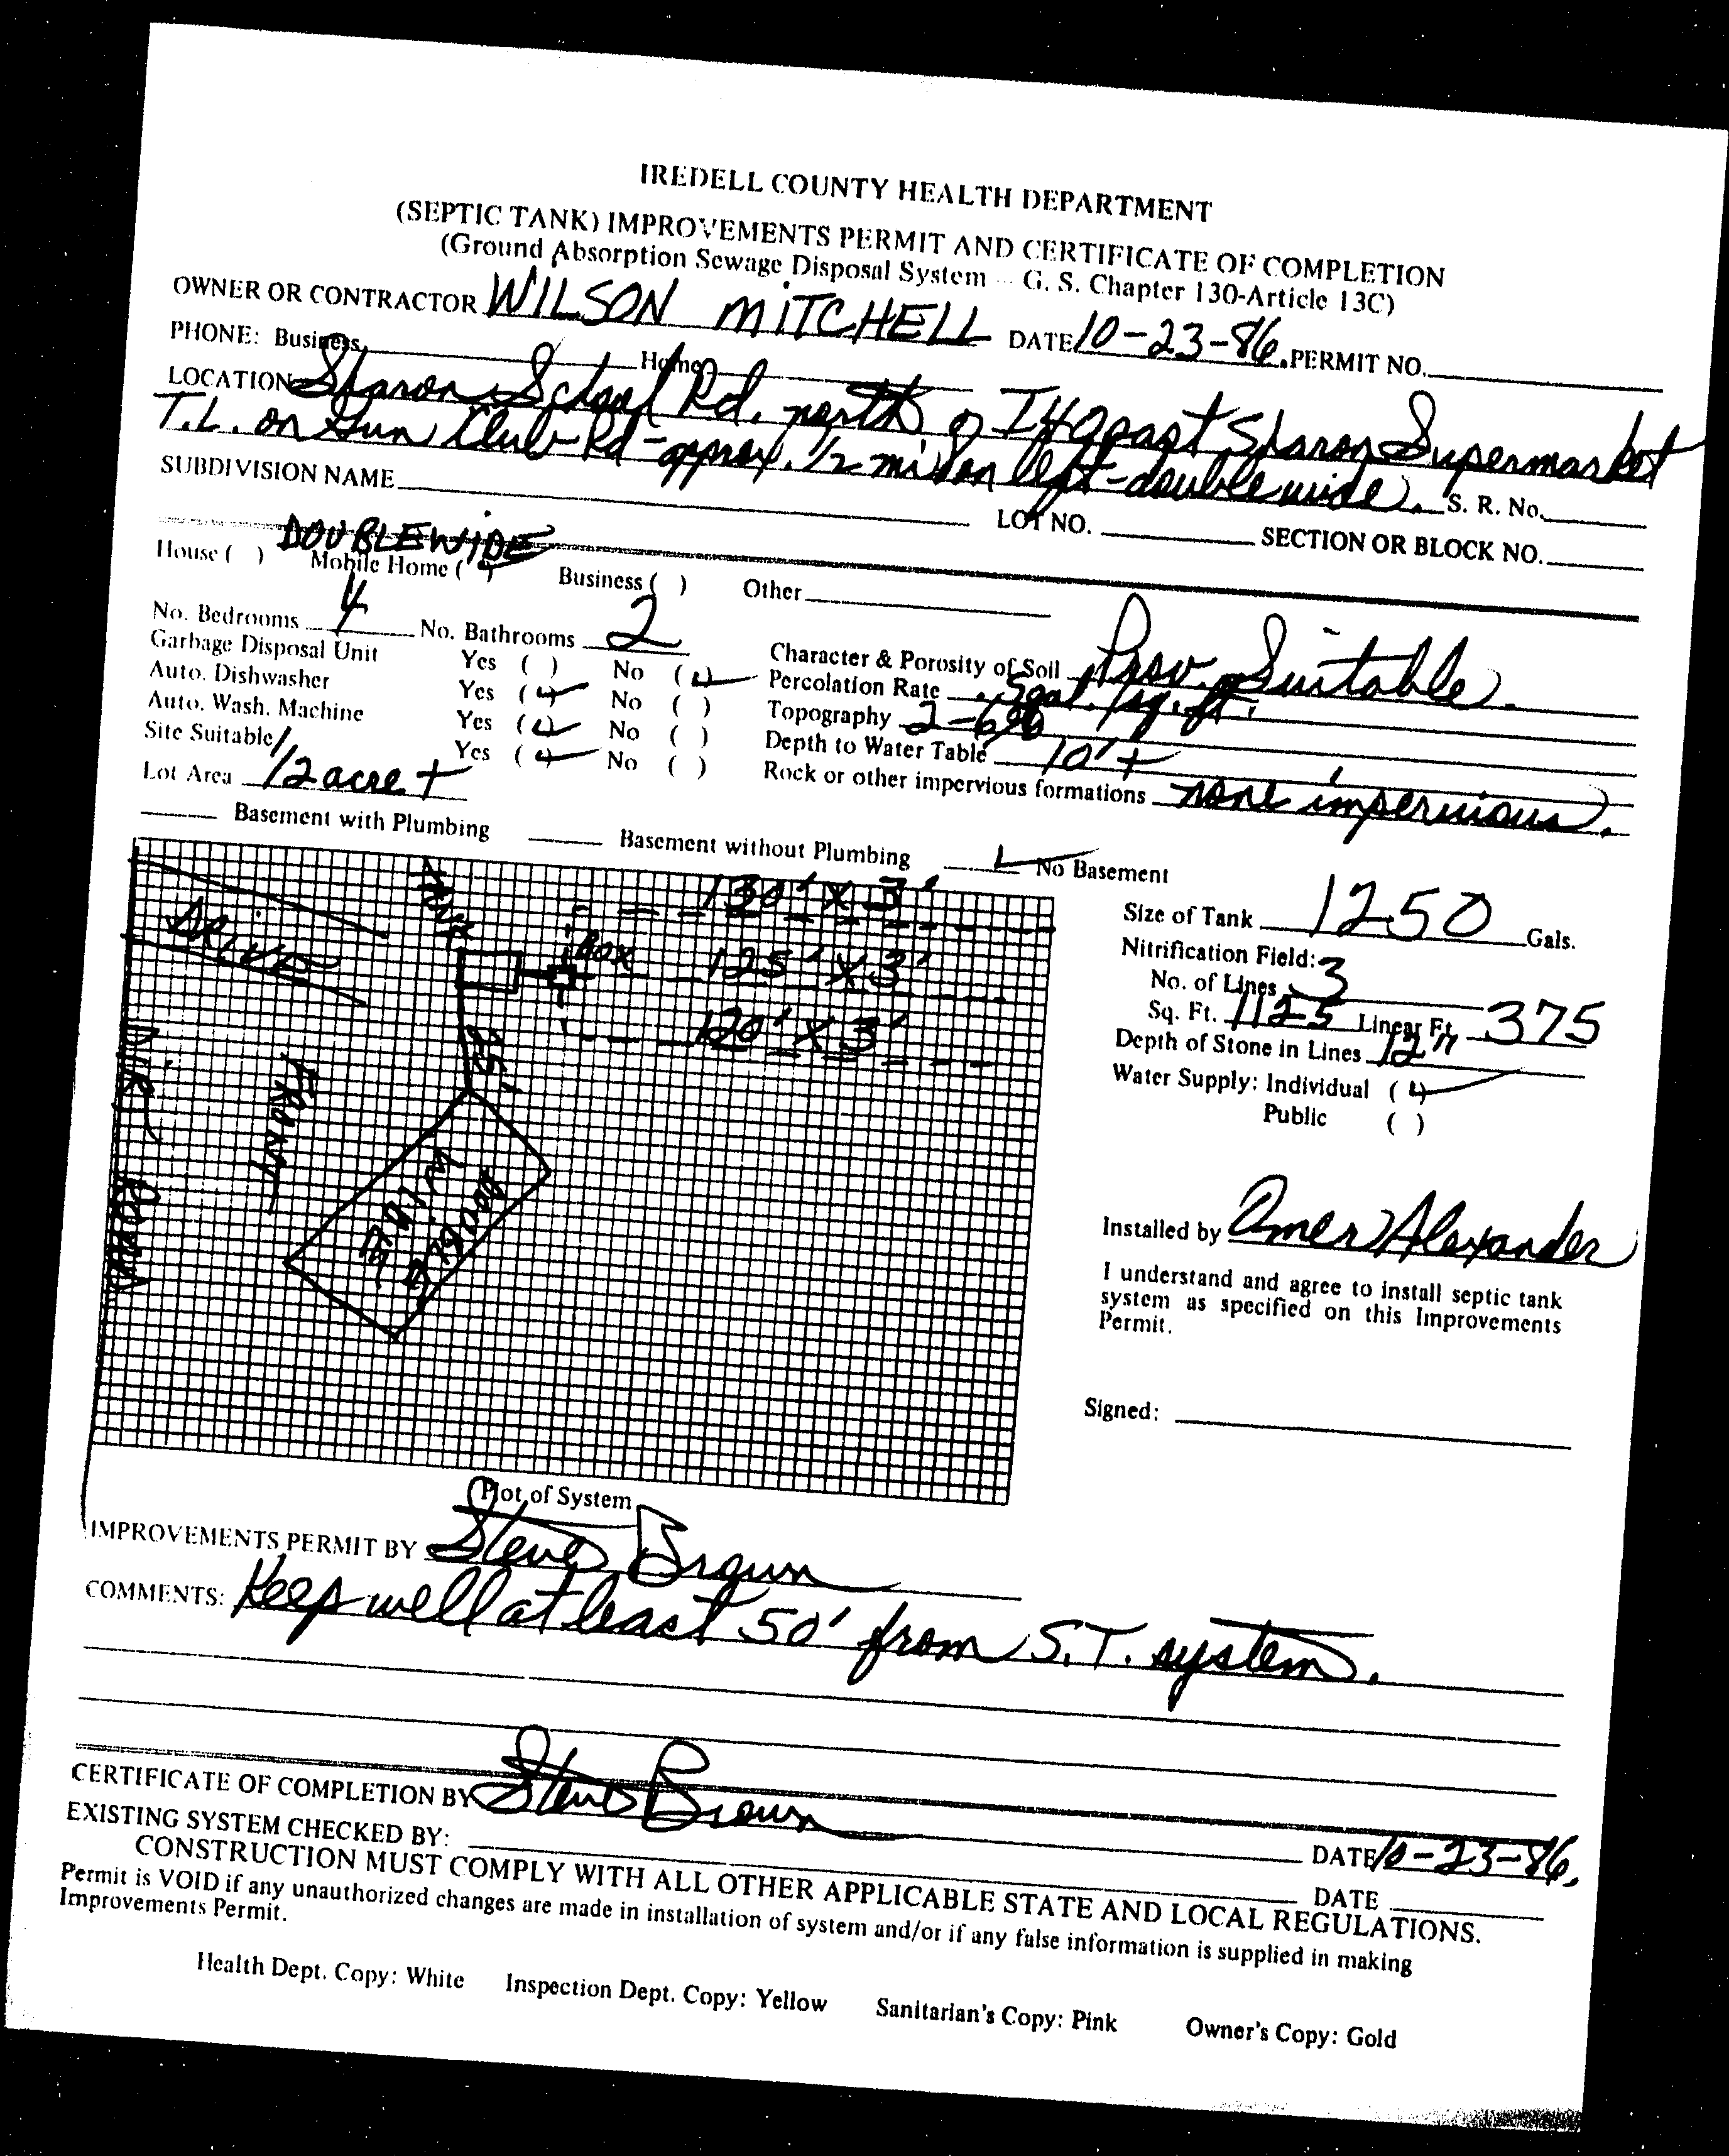 IREDELL COUNTY HEALTH DEPARTMENT
(SEPTIC TANK) IMPROVEMENTS PERMIT AND CERTIFICATE OF COMPLETION
(Ground Absorption Sewage Disposal System -- G. S. Chapter 130-Article 13C)
OWNER OR CONTRACTOR WILSON MITCHELL DATE 10-23-86. PERMIT NO.
PHONE: Business Home
LOCATION Sharon School Rd. north of I40 past Sharon Supermarket
T.L. on Gun Club Rd - approx. 1/2 mi on left - doublewide. S. R. No.
SUBDIVISION NAME LOT NO. SECTION OR BLOCK NO.
DOUBLEWIDE
House ( ) Mobile Home (✓) Business ( ) Other
No. Bedrooms 4 No. Bathrooms 2
Garbage Disposal Unit Yes ( ) No (✓)
Auto. Dishwasher Yes (✓) No ( )
Auto. Wash. Machine Yes (✓) No ( )
Site Suitable Yes (✓) No ( )
Lot Area 1/2 acre +
Character & Porosity of Soil Prov. Suitable.
Percolation Rate .3 gal./sq. ft.
Topography 2-6%
Depth to Water Table 10'+
Rock or other impervious formations none impervious.
Basement with Plumbing Basement without Plumbing ✓ No Basement
DRIVE
TANK
BOX
130' X 3'
125' X 3'
120' X 3'
FRONT
DIRT ROAD
DOUBLE
WIDE
Size of Tank 1250 Gals.
Nitrification Field:
No. of Lines 3
Sq. Ft. 1125 Linear Ft. 375
Depth of Stone in Lines 12"
Water Supply: Individual (✓)
Public ( )
Installed by Omer Alexander
I understand and agree to install septic tank
system as specified on this Improvements
Permit.
Signed:
Plot of System
IMPROVEMENTS PERMIT BY Steve Brown
COMMENTS: Keep well at least 50' from S.T. system.
CERTIFICATE OF COMPLETION BY Steve Brown DATE 10-23-86.
EXISTING SYSTEM CHECKED BY: DATE
CONSTRUCTION MUST COMPLY WITH ALL OTHER APPLICABLE STATE AND LOCAL REGULATIONS.
Permit is VOID if any unauthorized changes are made in installation of system and/or if any false information is supplied in making
Improvements Permit.
Health Dept. Copy: White Inspection Dept. Copy: Yellow Sanitarian's Copy: Pink Owner's Copy: Gold